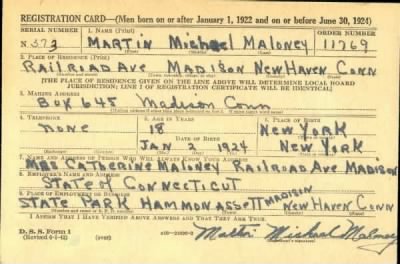 REGISTRATION CARD—(Men born on or after January 1, 1922 and on or before June 30, 1924)
SERIAL NUMBER 1. NAME (Print) ORDER NUMBER
N 373 MARTIN Michael MALONEY 11769
2. PLACE OF RESIDENCE (Print)
RAILROAD AVE MADISON NEW HAVEN CONN
[THE PLACE OF RESIDENCE GIVEN ON THE LINE ABOVE WILL DETERMINE LOCAL BOARD
JURISDICTION; LINE 2 OF REGISTRATION CERTIFICATE WILL BE IDENTICAL]
3. MAILING ADDRESS
BOX 645 Madison Conn
4. TELEPHONE 5. AGE IN YEARS 6. PLACE OF BIRTH
NONE 18 NEW YORK
JAN 2 1924 NEW YORK
7. NAME AND ADDRESS OF PERSON WHO WILL ALWAYS KNOW YOUR ADDRESS
MRS CATHERINE MALONEY RAILROAD AVE MADISON
8. EMPLOYER'S NAME AND ADDRESS
STATE OF CONNECTICUT
9. PLACE OF EMPLOYMENT OR BUSINESS
STATE PARK HAMMONASSETT MADISON NEW HAVEN CONN
I AFFIRM THAT I HAVE VERIFIED ABOVE ANSWERS AND THAT THEY ARE TRUE.
D. S. S. Form 1
Martin Michael Maloney